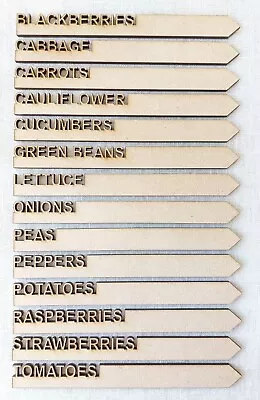 BLACKBERRIES
CABBAGE
CARROTS
CAULIFLOWER
CUCUMBERS
GREEN BEANS
LETTUCE
ONIONS
PEAS
PEPPERS
POTATOES
RASPBERRIES
STRAWBERRIES
TOMATOES